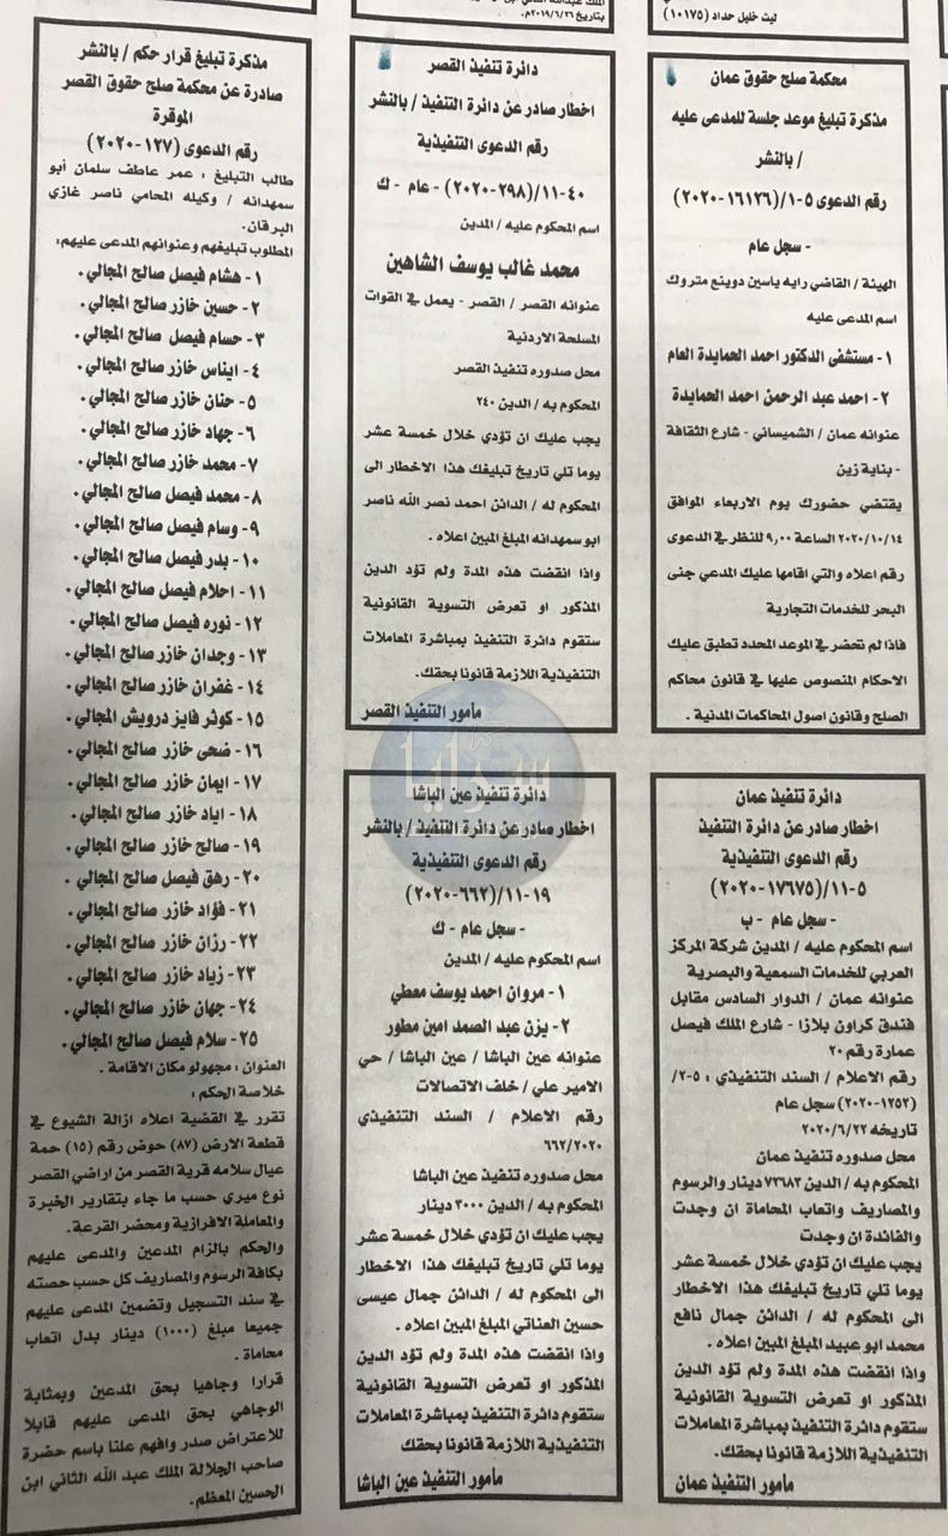 ليث خليل حداد (١٠١٧٥)
محكمة صلح حقوق عمان
مذكرة تبليغ موعد جلسة للمدعى عليه
/ بالنشر
رقم الدعوى ٥-١/(١٦١٢٦-٢٠٢٠)
- سجل عام
الهيئة / القاضي رايه ياسين دوينع متروك
اسم المدعى عليه
١- مستشفى الدكتور احمد الحمايدة العام
٢- احمد عبد الرحمن احمد الحمايدة
عنوانه عمان / الشميساني - شارع الثقافة
- بناية زين
يقتضي حضورك يوم الاربعاء الموافق
٢٠٢٠/١٠/١٤ الساعة ٩,٠٠ للنظر في الدعوى
رقم اعلاه والتي اقامها عليك المدعي جنى
البحر للخدمات التجارية
فاذا لم تحضر في الموعد المحدد تطبق عليك
الاحكام المنصوص عليها في قانون محاكم
الصلح وقانون اصول المحاكمات المدنية .
دائرة تنفيذ عمان
اخطار صادر عن دائرة التنفيذ
رقم الدعوى التنفيذية
٥-١١/(١٧٦٧٥-٢٠٢٠)
- سجل عام - ب
اسم المحكوم عليه / المدين شركة المركز
العربي للخدمات السمعية والبصرية
عنوانه عمان / الدوار السادس مقابل
فندق كراون بلازا - شارع الملك فيصل
عمارة رقم ٢٠
رقم الاعلام / السند التنفيذي : ٥-٢/
(١٢٥٢-٢٠٢٠) سجل عام
تاريخه ٢٠٢٠/٦/٢٢
محل صدوره تنفيذ عمان
المحكوم به / الدين ٧٢٦٨٢ دينار والرسوم
والمصاريف واتعاب المحاماة ان وجدت
والفائدة ان وجدت
يجب عليك ان تؤدي خلال خمسة عشر
يوما تلي تاريخ تبليغك هذا الاخطار
الى المحكوم له / الدائن جمال نافع
محمد ابو عبيد المبلغ المبين اعلاه .
واذا انقضت هذه المدة ولم تؤد الدين
المذكور او تعرض التسوية القانونية
ستقوم دائرة التنفيذ بمباشرة المعاملات
التنفيذية اللازمة قانونا بحقك.
مأمور التنفيذ عمان
بتاريخ ٢٠١٩/٦/٢٦م.
دائرة تنفيذ القصر
اخطار صادر عن دائرة التنفيذ / بالنشر
رقم الدعوى التنفيذية
٤٠-١١/(٢٩٨-٢٠٢٠) - عام - ك
اسم المحكوم عليه / المدين
محمد غالب يوسف الشاهين
عنوانه القصر / القصر - يعمل في القوات
المسلحة الاردنية
محل صدوره تنفيذ القصر
المحكوم به / الدين ٢٤٠
يجب عليك ان تؤدي خلال خمسة عشر
يوما تلي تاريخ تبليغك هذا الاخطار الى
المحكوم له / الدائن احمد نصر الله ناصر
ابو سمهدانه المبلغ المبين اعلاه .
واذا انقضت هذه المدة ولم تؤد الدين
المذكور او تعرض التسوية القانونية
ستقوم دائرة التنفيذ بمباشرة المعاملات
التنفيذية اللازمة قانونا بحقك.
مأمور التنفيذ القصر
سرايا
دائرة تنفيذ عين الباشا
اخطار صادر عن دائرة التنفيذ / بالنشر
رقم الدعوى التنفيذية
١٩-١١/(٦٦٢-٢٠٢٠)
- سجل عام - ك
اسم المحكوم عليه / المدين
١- مروان احمد يوسف معطي
٢- يزن عبد الصمد امين مطور
عنوانه عين الباشا / عين الباشا / حي
الامير علي / خلف الاتصالات
رقم الاعلام / السند التنفيذي
٦٦٢/٢٠٢٠
محل صدوره تنفيذ عين الباشا
المحكوم به / الدين ٣٠٠٠ دينار
يجب عليك ان تؤدي خلال خمسة عشر
يوما تلي تاريخ تبليغك هذا الاخطار
الى المحكوم له / الدائن جمال عيسى
حسين العناتي المبلغ المبين اعلاه .
واذا انقضت هذه المدة ولم تؤد الدين
المذكور او تعرض التسوية القانونية
ستقوم دائرة التنفيذ بمباشرة المعاملات
التنفيذية اللازمة قانونا بحقك
مأمور التنفيذ عين الباشا
مذكرة تبليغ قرار حكم / بالنشر
صادرة عن محكمة صلح حقوق القصر
الموقرة
رقم الدعوى (١٢٧-٢٠٢٠)
طالب التبليغ : عمر عاطف سلمان أبو
سمهدانه / وكيله المحامي ناصر غازي
البرقان.
المطلوب تبليغهم وعنوانهم المدعى عليهم:
١- هشام فيصل صالح المجالي .
٢- حسين خازر صالح المجالي .
٣- حسام فيصل صالح المجالي .
٤- ايناس خازر صالح المجالي .
٥- حنان خازر صالح المجالي .
٦- جهاد خازر صالح المجالي .
٧- محمد خازر صالح المجالي .
٨- محمد فيصل صالح المجالي .
٩- وسام فيصل صالح المجالي .
١٠- بدر فيصل صالح المجالي .
١١- احلام فيصل صالح المجالي .
١٢- نوره فيصل صالح المجالي .
١٣- وجدان خازر صالح المجالي .
١٤- غفران خازر صالح المجالي .
١٥- كوثر فايز درويش المجالي .
١٦- ضحى خازر صالح المجالي .
١٧- ايمان خازر صالح المجالي .
١٨- اياد خازر صالح المجالي .
١٩- صالح خازر صالح المجالي .
٢٠- رهق فيصل صالح المجالي .
٢١- فؤاد خازر صالح المجالي .
٢٢- رزان خازر صالح المجالي .
٢٣- زياد خازر صالح المجالي .
٢٤- جهان خازر صالح المجالي .
٢٥- سلام فيصل صالح المجالي .
العنوان : مجهولو مكان الاقامة .
خلاصة الحكم :
تقرر في القضية اعلاه ازالة الشيوع في
قطعة الارض (٨٧) حوض رقم (١٥) حمة
عيال سلامه قرية القصر من اراضي القصر
نوع ميري حسب ما جاء بتقارير الخبرة
والمعاملة الافرازية ومحضر القرعة.
والحكم بالزام المدعين والمدعى عليهم
بكافة الرسوم والمصاريف كل حسب حصته
في سند التسجيل وتضمين المدعى عليهم
جميعا مبلغ (١٠٠٠) دينار بدل اتعاب
محاماة .
قرارا وجاهيا بحق المدعين وبمثابة
الوجاهي بحق المدعى عليهم قابلا
للاعتراض صدر وافهم علنا باسم حضرة
صاحب الجلالة الملك عبد الله الثاني ابن
الحسين المعظم.